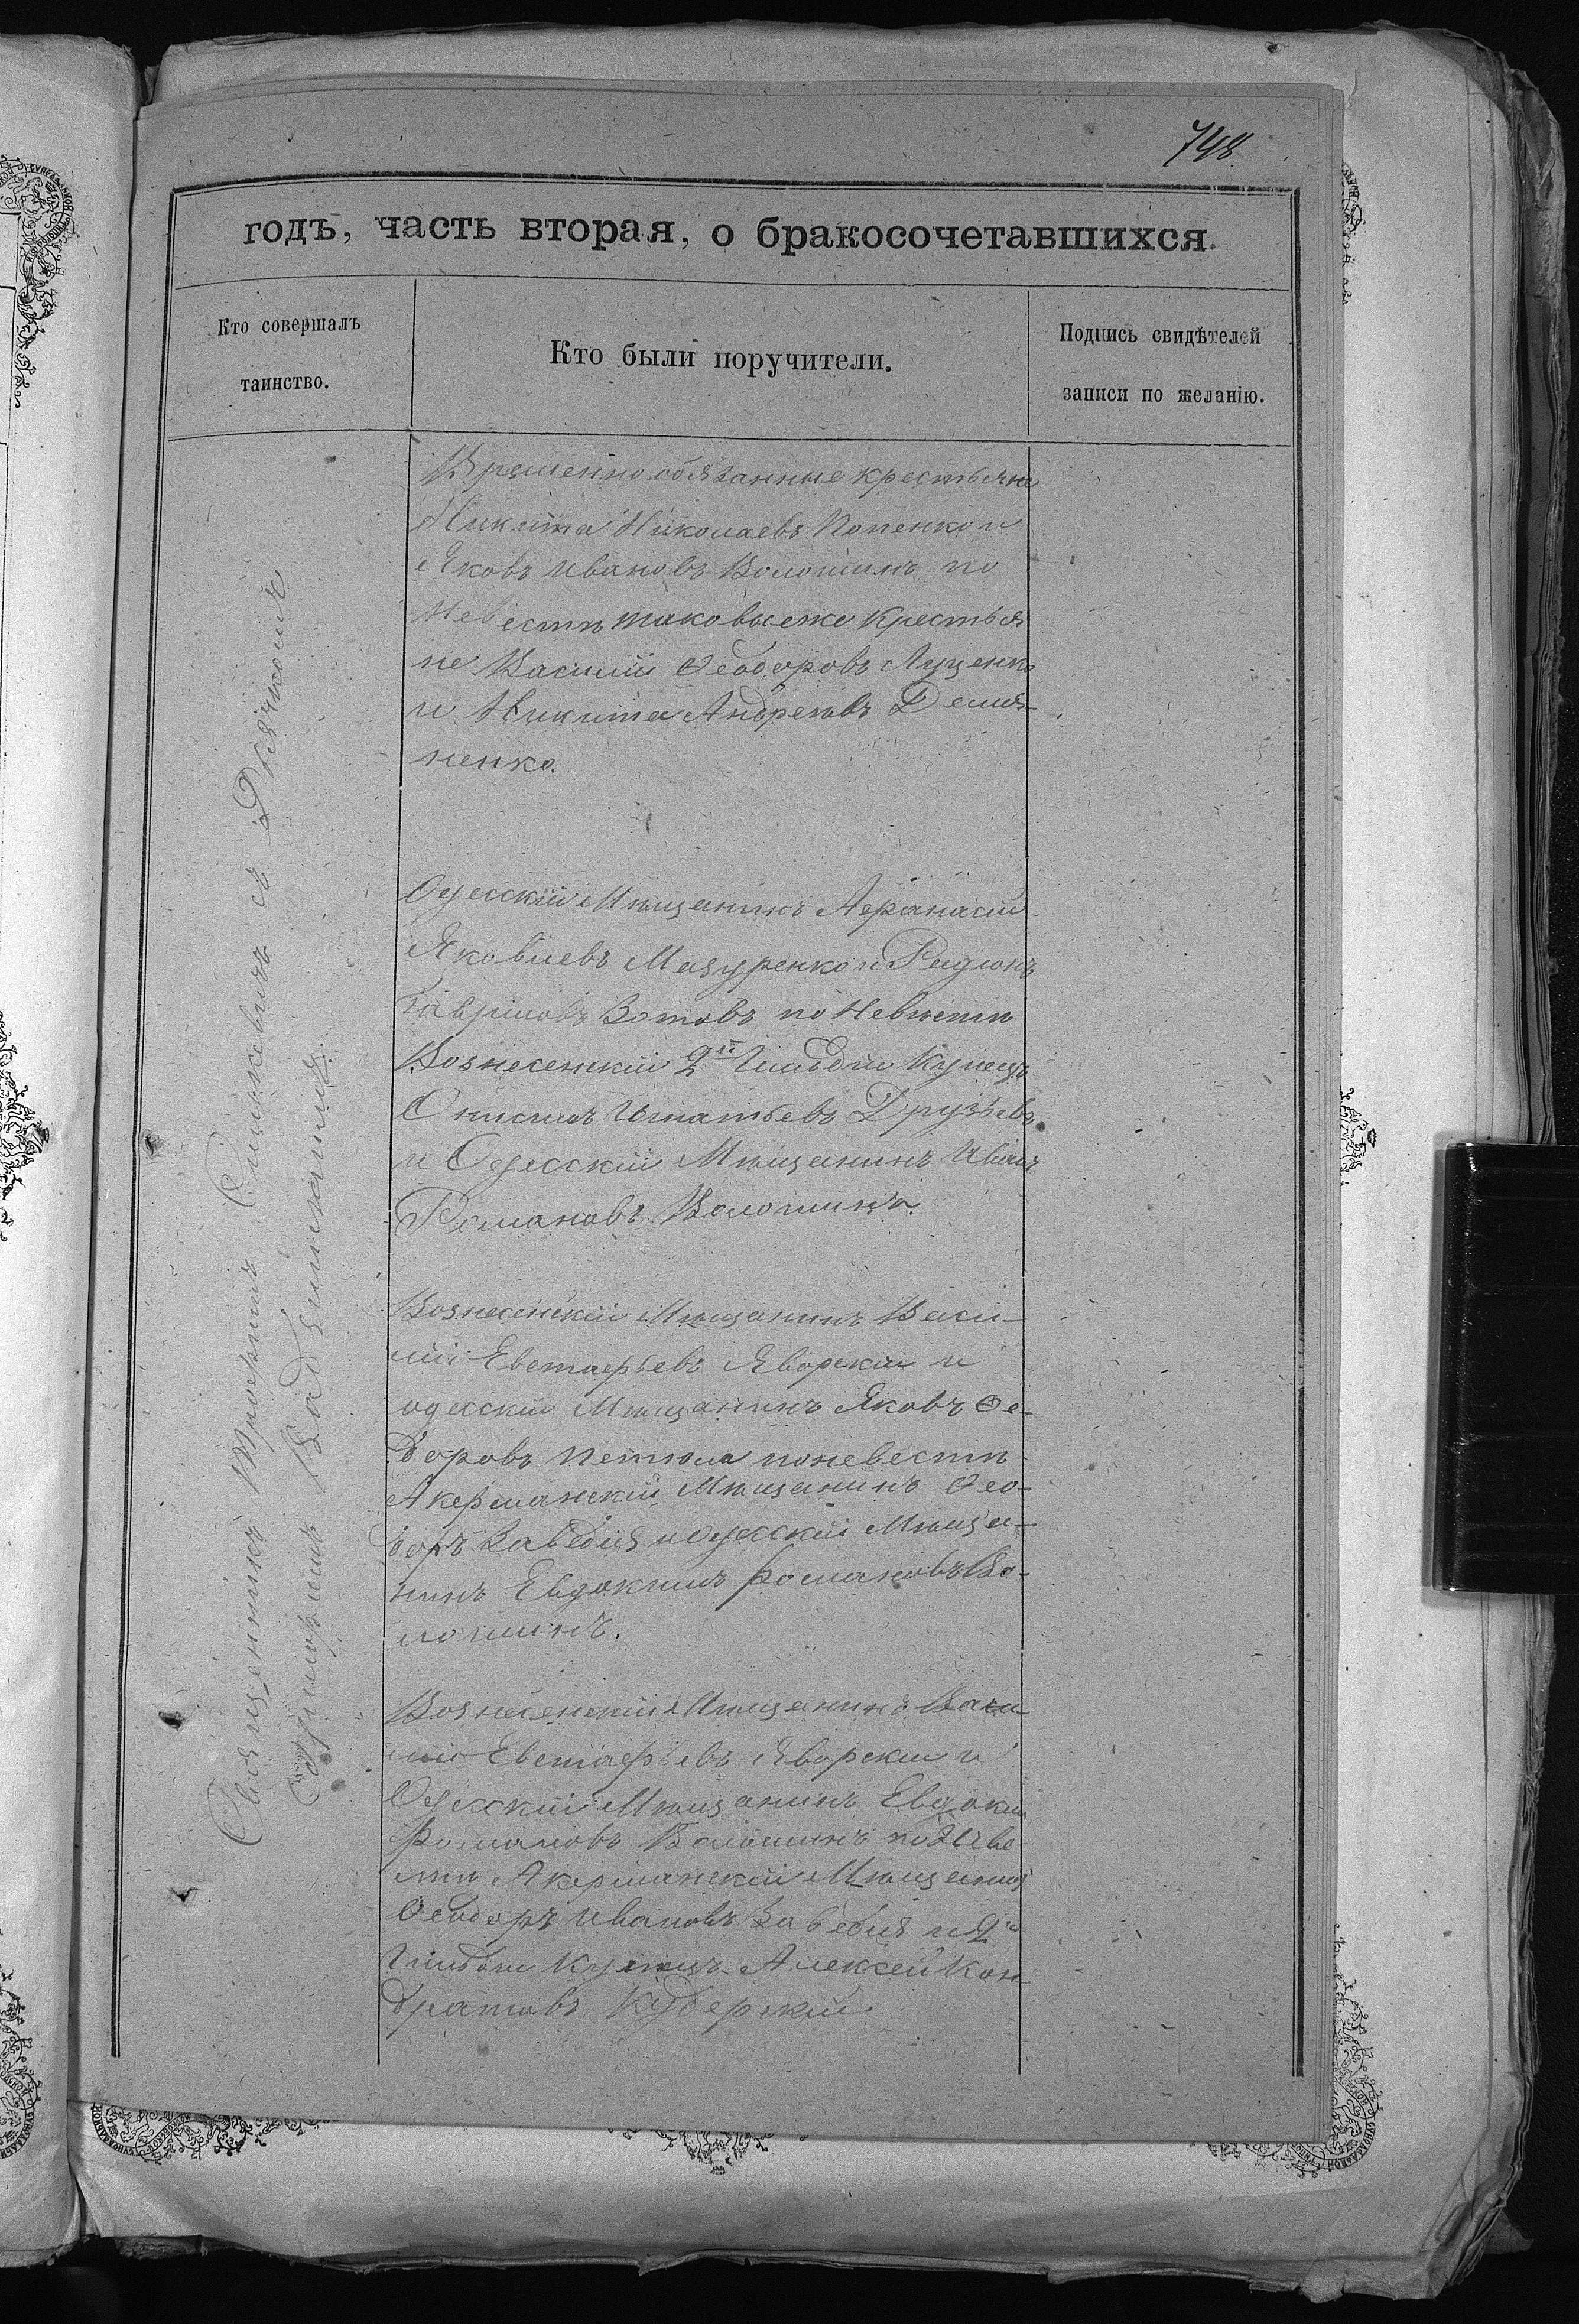 748.
годъ, часть вторая, о бракосочетавшихся.
Кто совершалъ
таинство.
Кто были поручители.
Подпись свидѣтелей
записи по желанію.
Временно обязанные крестьяне
Никита Николаевъ Попенко и
Яковъ Ивановъ Волошинъ по
Невестѣ таковыеже Крестья
не Василій Ѳеодоровъ Луценко
и Никита Андреевъ Демя-
ненко.
Одесскій Мѣщанинъ Афанасій
Яковлевъ Мазуренко и Радионъ
Гавриловъ Зотовъ по Невѣстѣ
Вознесенскій 2й Гильдіи Купецъ
Онисимъ Игнатьевъ Друзьевъ
и Одесскій Мѣщанинъ Иванъ
Романовъ Волошинъ.
Вознесенскій Мѣщанинъ Васи-
лій Евстафьевъ Яворскій и
одесскій Мѣщанинъ Яковъ Ѳе-
доровъ Петюла поневестѣ
Акерманскій Мѣщанинъ Ѳео-
доръ Заведия и Одесскій Мѣща-
нинъ Евдокимъ Романовъ Во-
лошинъ.
Вознесенскій Мѣщанинъ Васи
лій Евстафьевъ Яворскій и
Одесскій Мѣщанинъ Евдоким
Романовъ Волошинъ по Неве
стѣ Акерманскій Мѣщанинъ
Ѳеодоръ Ивановъ Заведия и 2й
Гильдіи Купецъ Алексей Кон
дратовъ Кудерскій.
Священникъ Трофимъ Симкевичъ съ Дьячкомъ